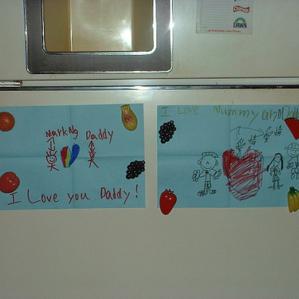 Mark Ng Daddy
I Love you Daddy!
I Love Mummy and